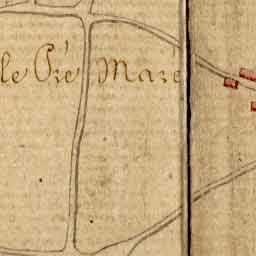 le Pré Mare